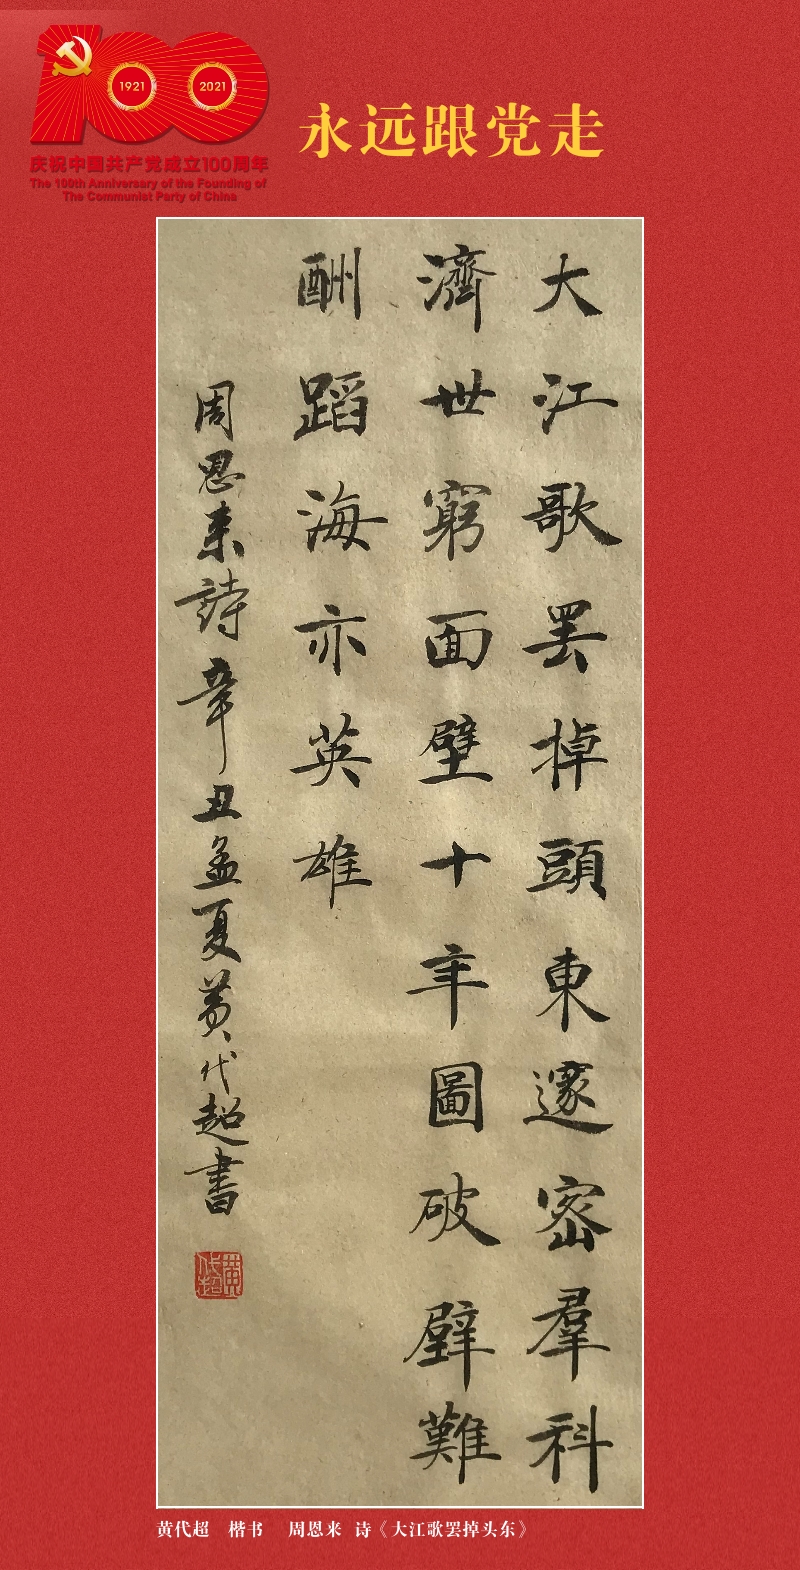 1921
2021
庆祝中国共产党成立100周年
The 100th Anniversary of the Founding of
The Communist Party of China
永远跟党走
大江歌罷掉頭東邃密羣科
濟世窮面壁十年圖破壁難
酬蹈海亦英雄
周恩来詩辛丑孟夏黄代超書
黄代超
黄代超 楷书 周恩来 诗《大江歌罢掉头东》